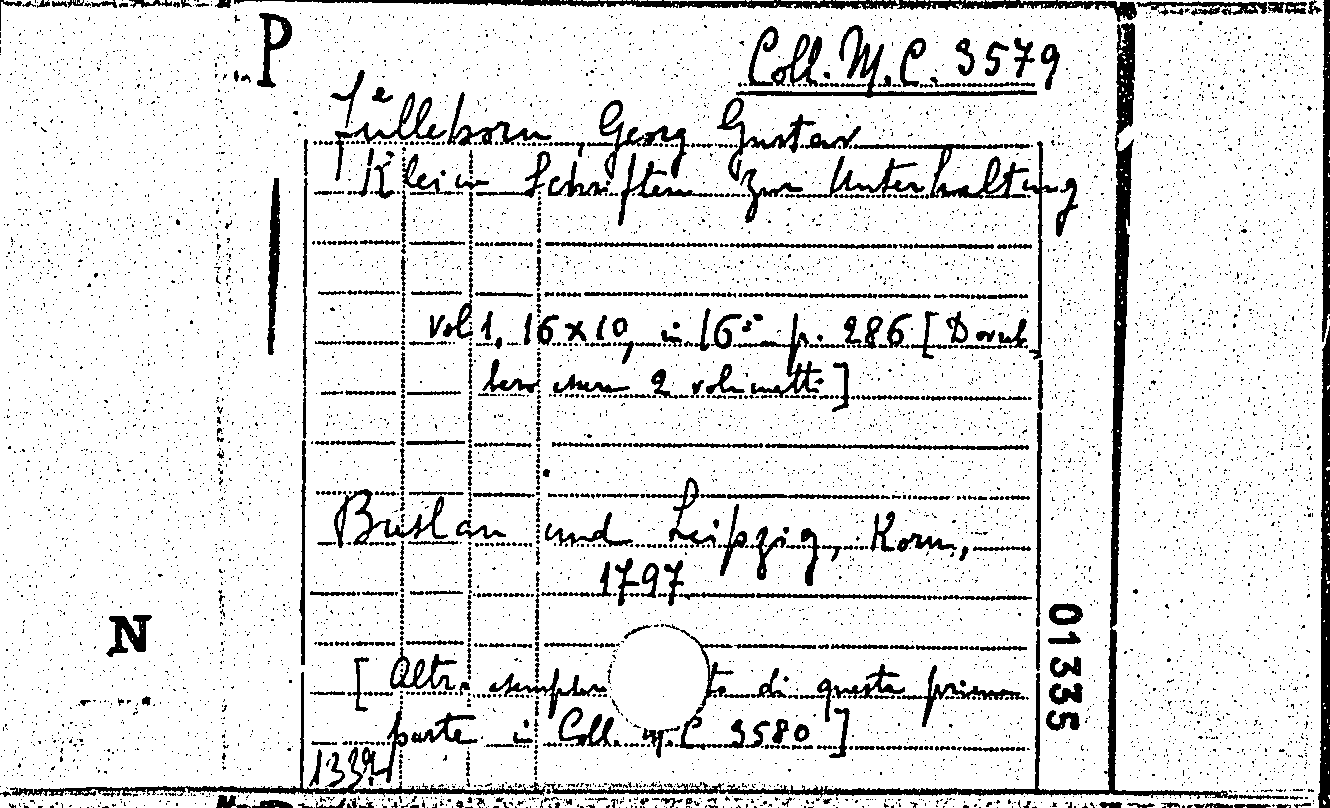 P
Coll. M. C. 3579
Fülleborn, Georg Gustav
Klein Schriften zur Unterhaltung
vol 1, 16x10, in 16° p. 286 [Dovreb
bero essere 2 volumetti]
Breslau und Leipzig, Korn,
1797
N
01335
[Altro di questa prima
parte in Coll. M.C. 3580]